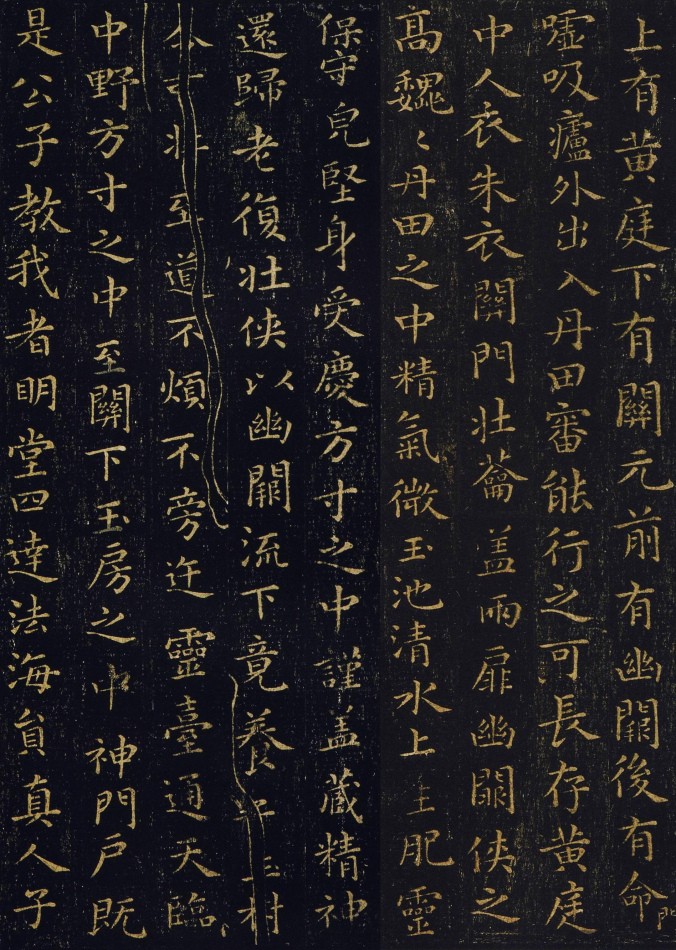 上有黃庭下有關元前有幽闕後有命門
噓吸廬外出入丹田審能行之可長存黃庭
中人衣朱衣關門壯蘥蓋兩扉幽闕俠之
高魏〻丹田之中精氣微玉池清水上生肥靈
保守皃堅身受慶方寸之中謹蓋藏精神
還歸老復壯俠以幽闕流下竟養子玉樹
至道不煩不旁迕靈臺通天臨
中野方寸之中至關下玉房之中神門戶既
是公子教我者明堂四達法海員真人子